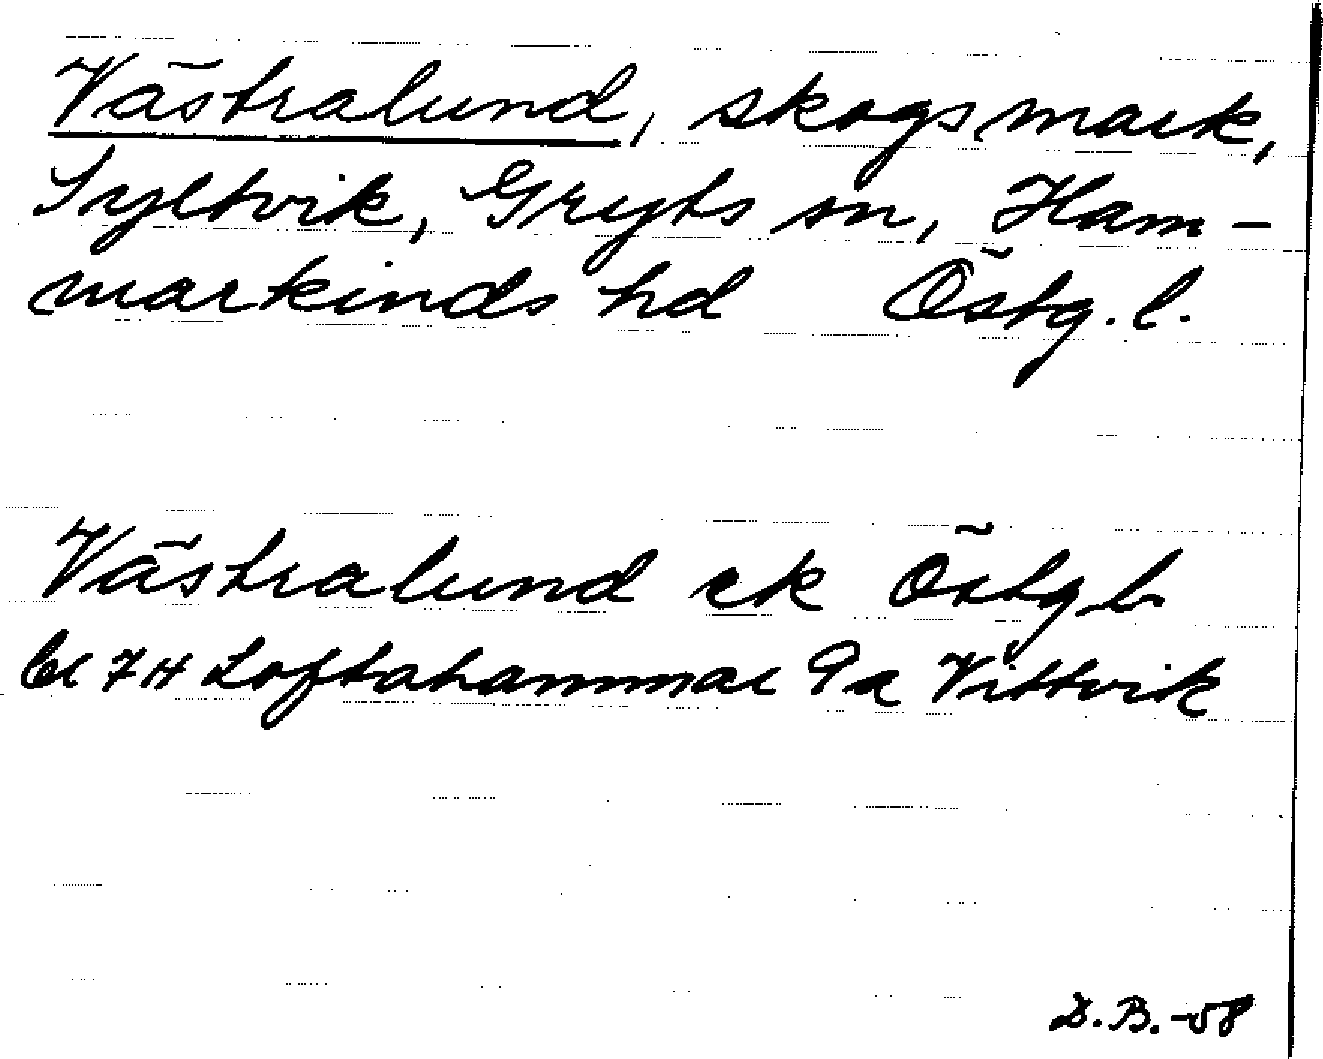 Västralund, skogsmark,
Syltvik, Gryts sn, Ham-
markinds hd Östg. l.
Västralund ek Östg b
bl 7H Loftahammar 9a Vittvik
D.B.-58